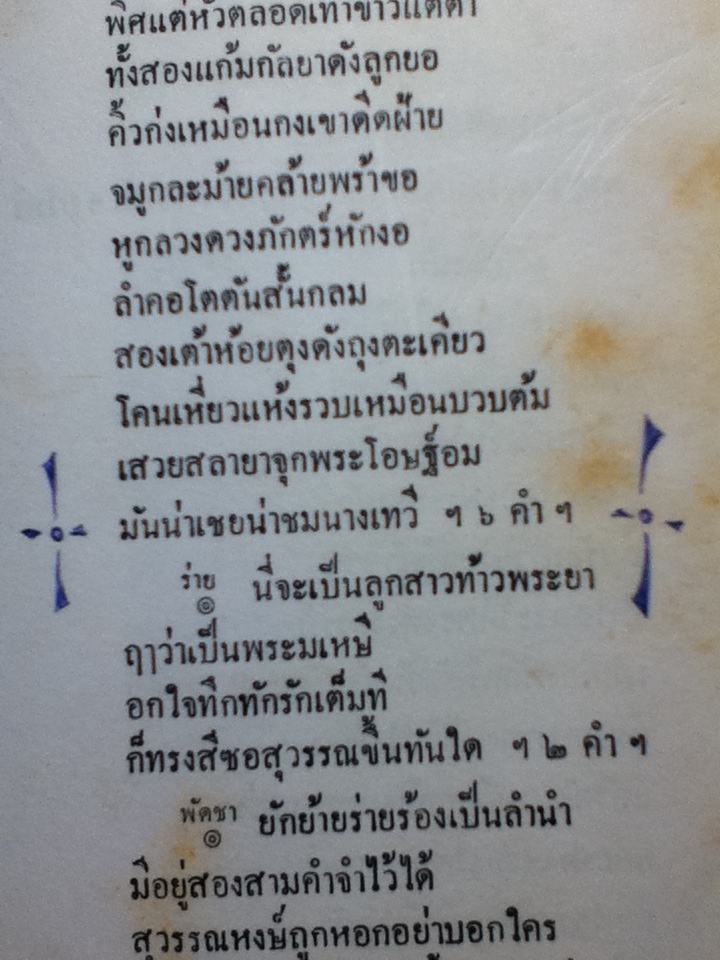 พิศแต่หัวตลอดเท้าขาวแต่ตา
ทั้งสองแก้มกัลยาดังลูกยอ
คิ้วก่งเหมือนกงเขาดีดฝ้าย
จมูกละม้ายคล้ายพร้าขอ
หูกลวงดวงภักตร์หักงอ
ลำคอโตตันสั้นกลม
สองเต้าห้อยตุงดังถุงตะเคียว
โคนเหี่ยวแห้งรวบเหมือนบวบต้ม
เสวยสลายาจุกพระโอษฐ์อม
มันน่าเชยน่าชมนางเทวี ฯ ๖ คำ ฯ
ร่าย ๏ นี่จะเป็นลูกสาวท้าวพระยา
ฤๅว่าเป็นพระมเหษี
อกใจทึกทักรักเต็มที
ก็ทรงสีซอสุวรรณขึ้นทันใด ฯ ๒ คำ ฯ
พัดชา ๏ ยักย้ายร่ายร้องเป็นลำนำ
มีอยู่สองสามคำจำไว้ได้
สุวรรณหงษ์ถูกหอกอย่าบอกใคร